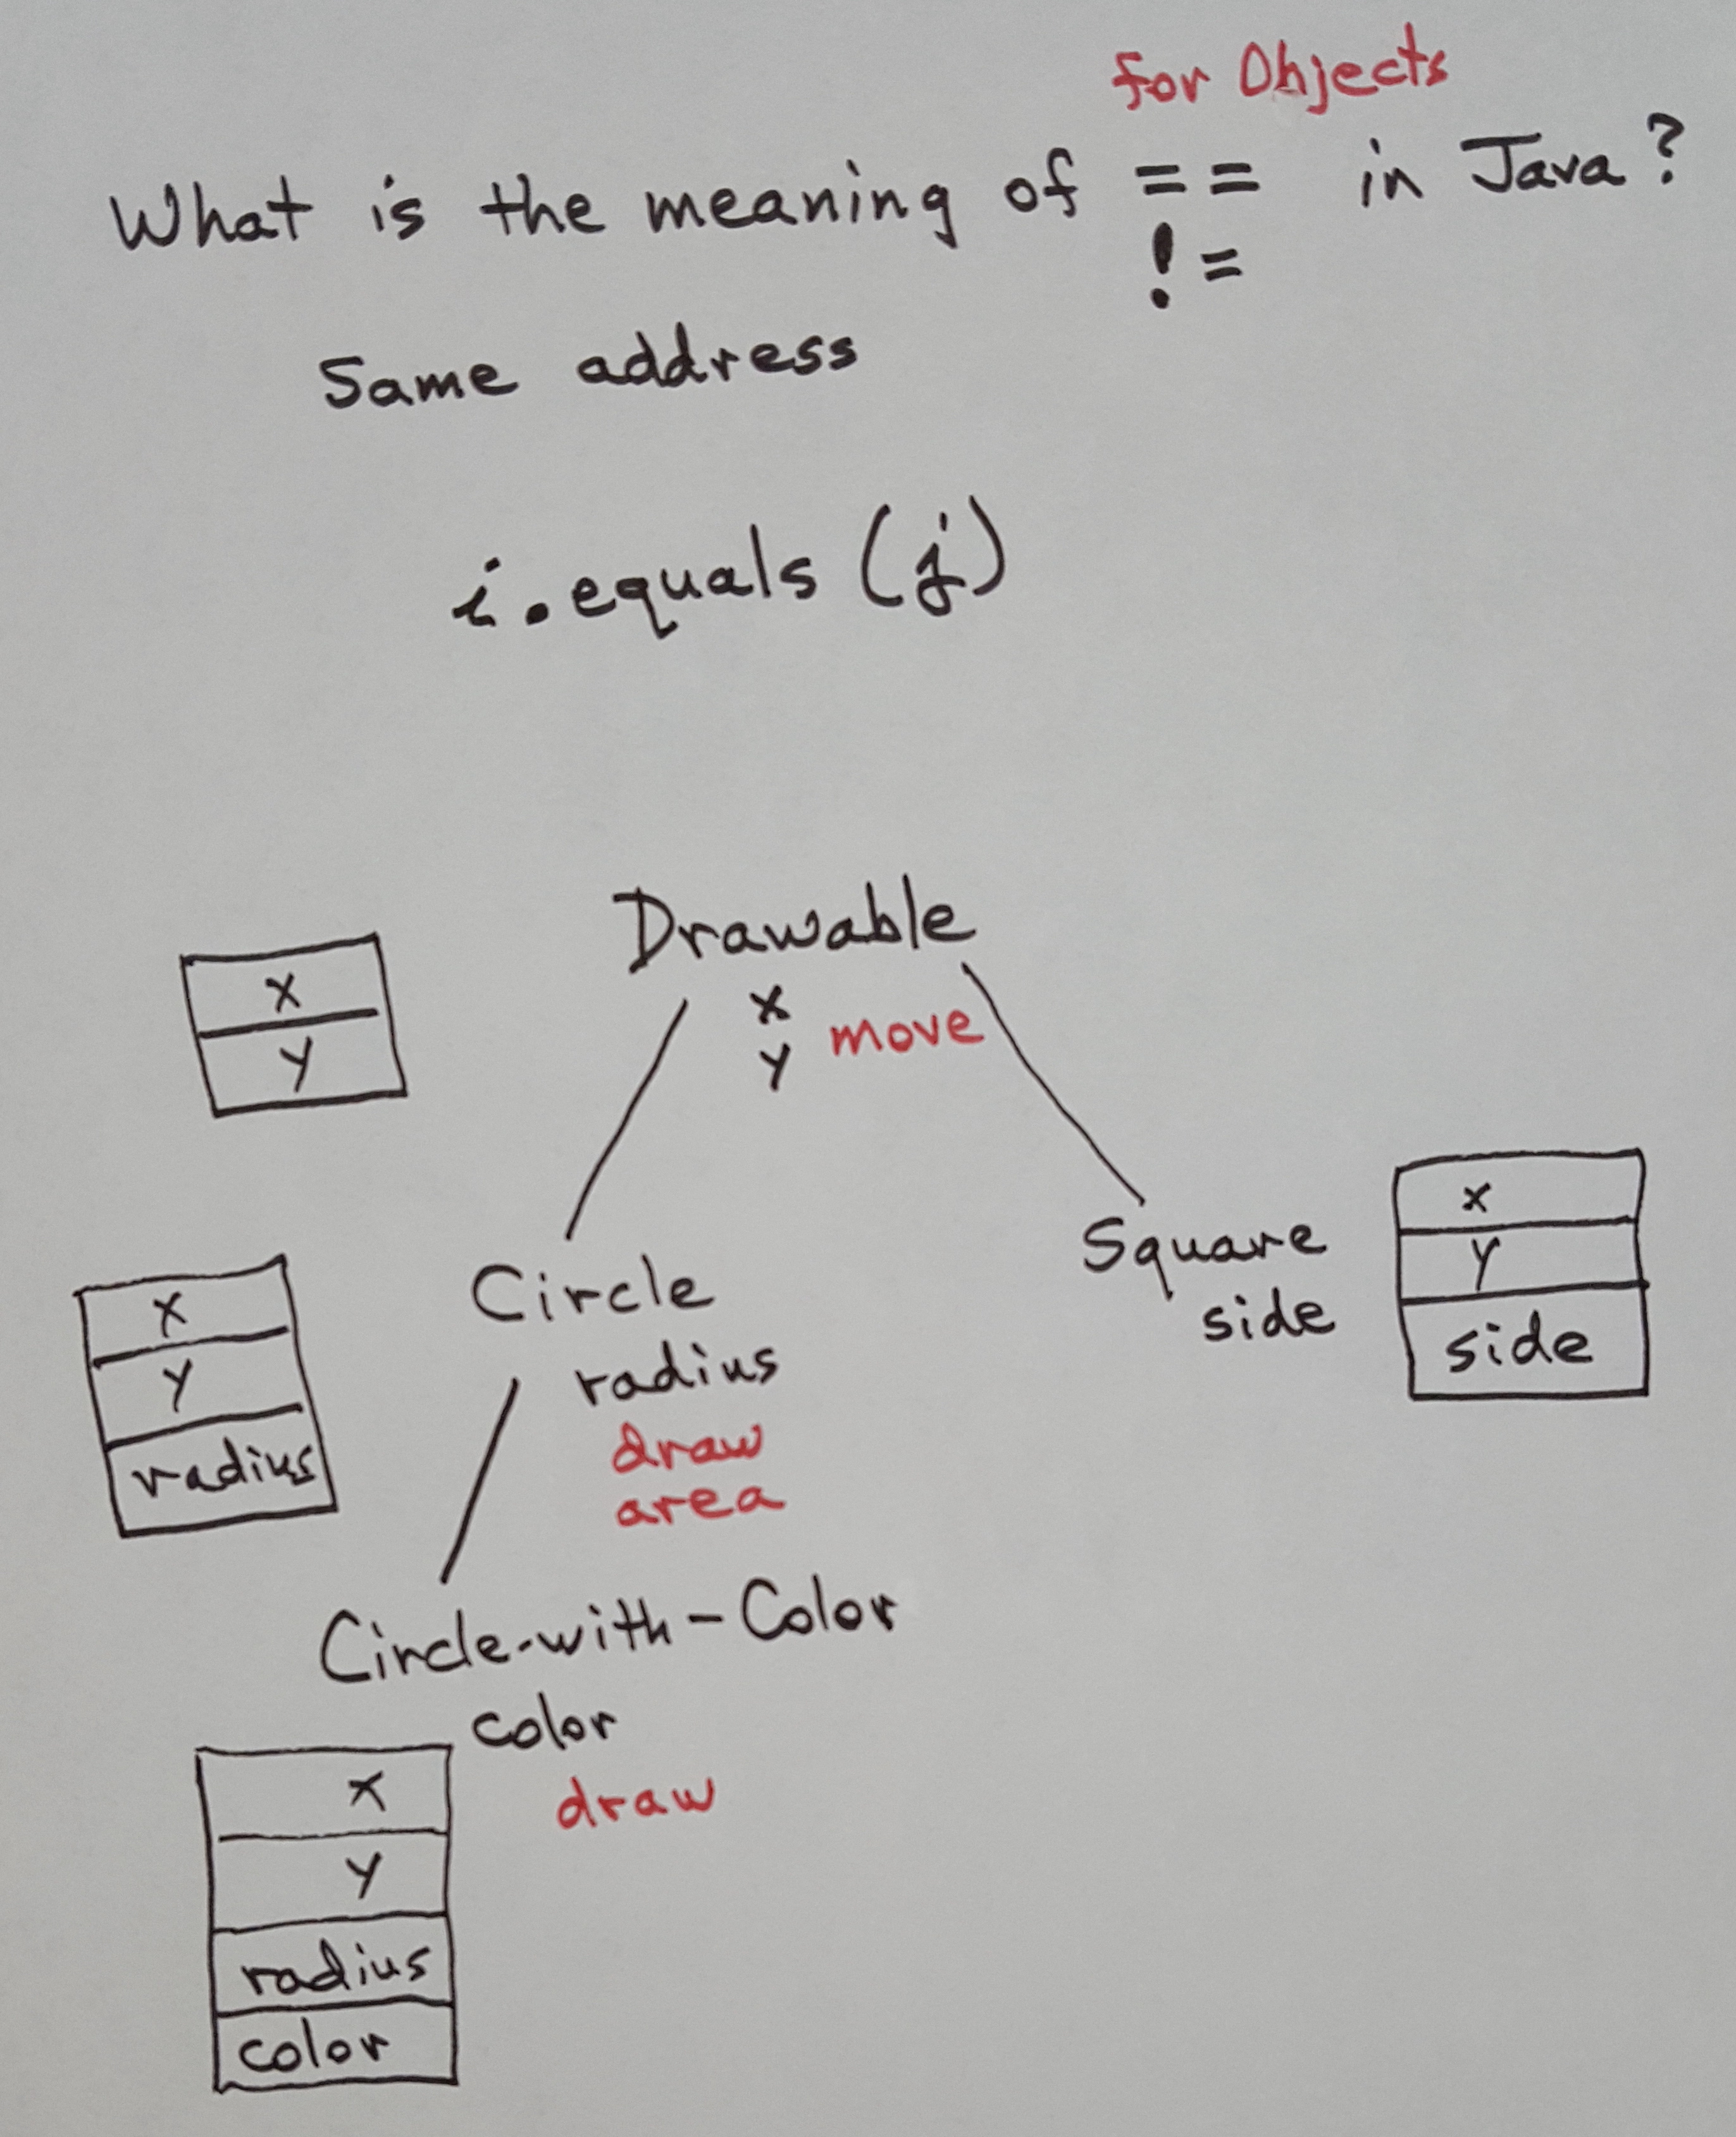 for Objects
What is the meaning of == in Java?
!=
Same address
i.equals(j)
Drawable
x
y move
x
y
Circle
radius
draw
area
x
y
radius
Square
side
x
y
side
Circle-with-Color
color
draw
x
y
radius
color